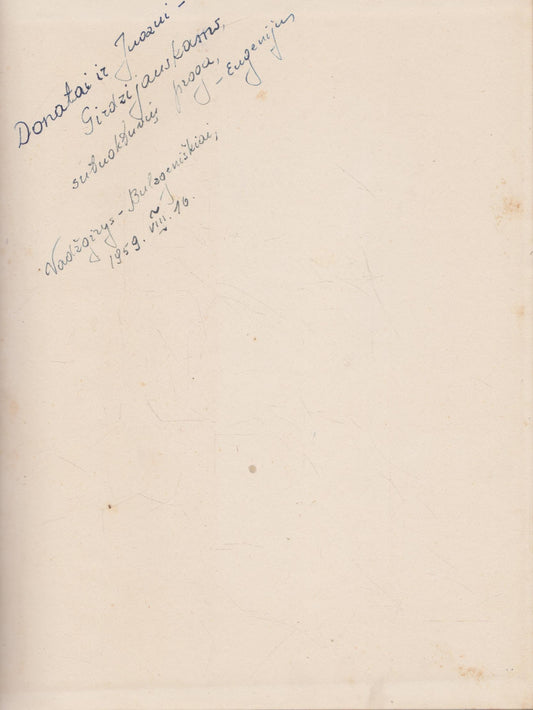 Donatai ir Juozui –
Girdzijauskams,
sutuoktuvių proga,
– Eugenijus
Vadžgirys – Bulzgeniškiai,
1959. VIII. 16.